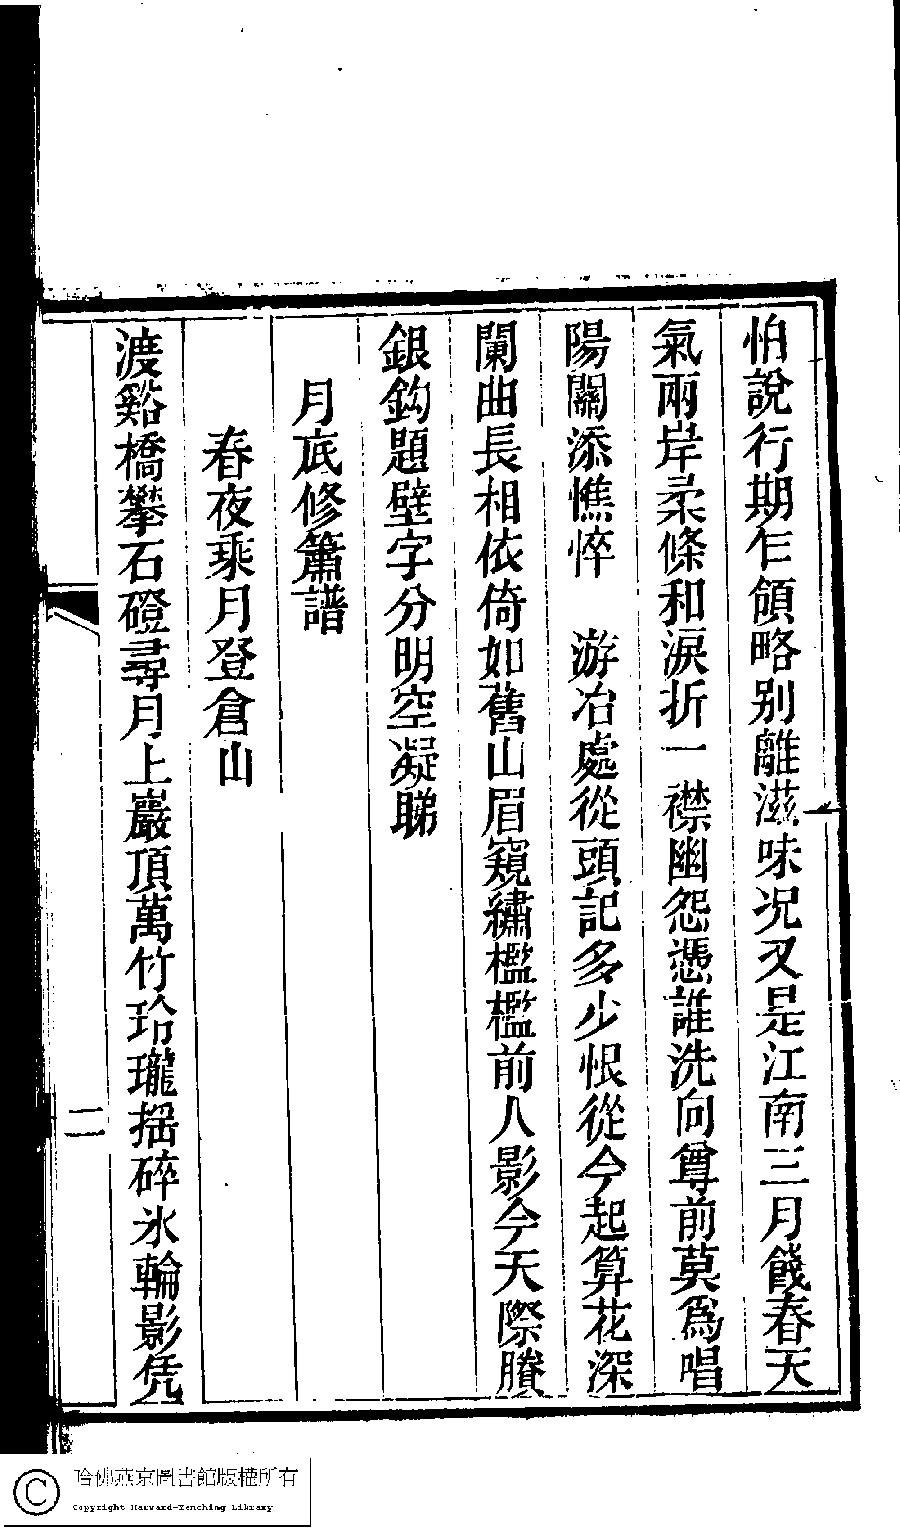 怕說行期乍領略別離滋味况又是江南三月餞春天
氣兩岸柔條和淚折一襟幽怨憑誰洗向尊前莫爲唱
陽關添憔悴　游冶處從頭記多少恨從今起算花深
闌曲長相依倚如舊山眉窺繡檻檻前人影今天際賸
銀鈎題壁字分明空凝睇
月底修簫譜
春夜乘月登倉山
渡谿橋攀石磴尋月上巖頂萬竹玲瓏搖碎氷輪影凭
二
哈佛燕京圖書館版權所有
Copyright Harvard-Yenching Library